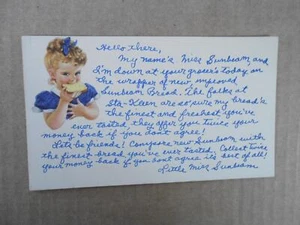 Hello there,
My name's Miss Sunbeam and
I'm down at your grocer's today on
the wrapper of new, improved
Sunbeam Bread. The folks at
Sta-Kleen are so sure my bread's
the finest and freshest you've
ever tasted they offer you twice your
money back if you don't agree!
Let's be friends! Compare new Sunbeam with
the finest bread you've ever tasted. Collect twice
your money back if you don't agree it's best of all!
Little Miss Sunbeam